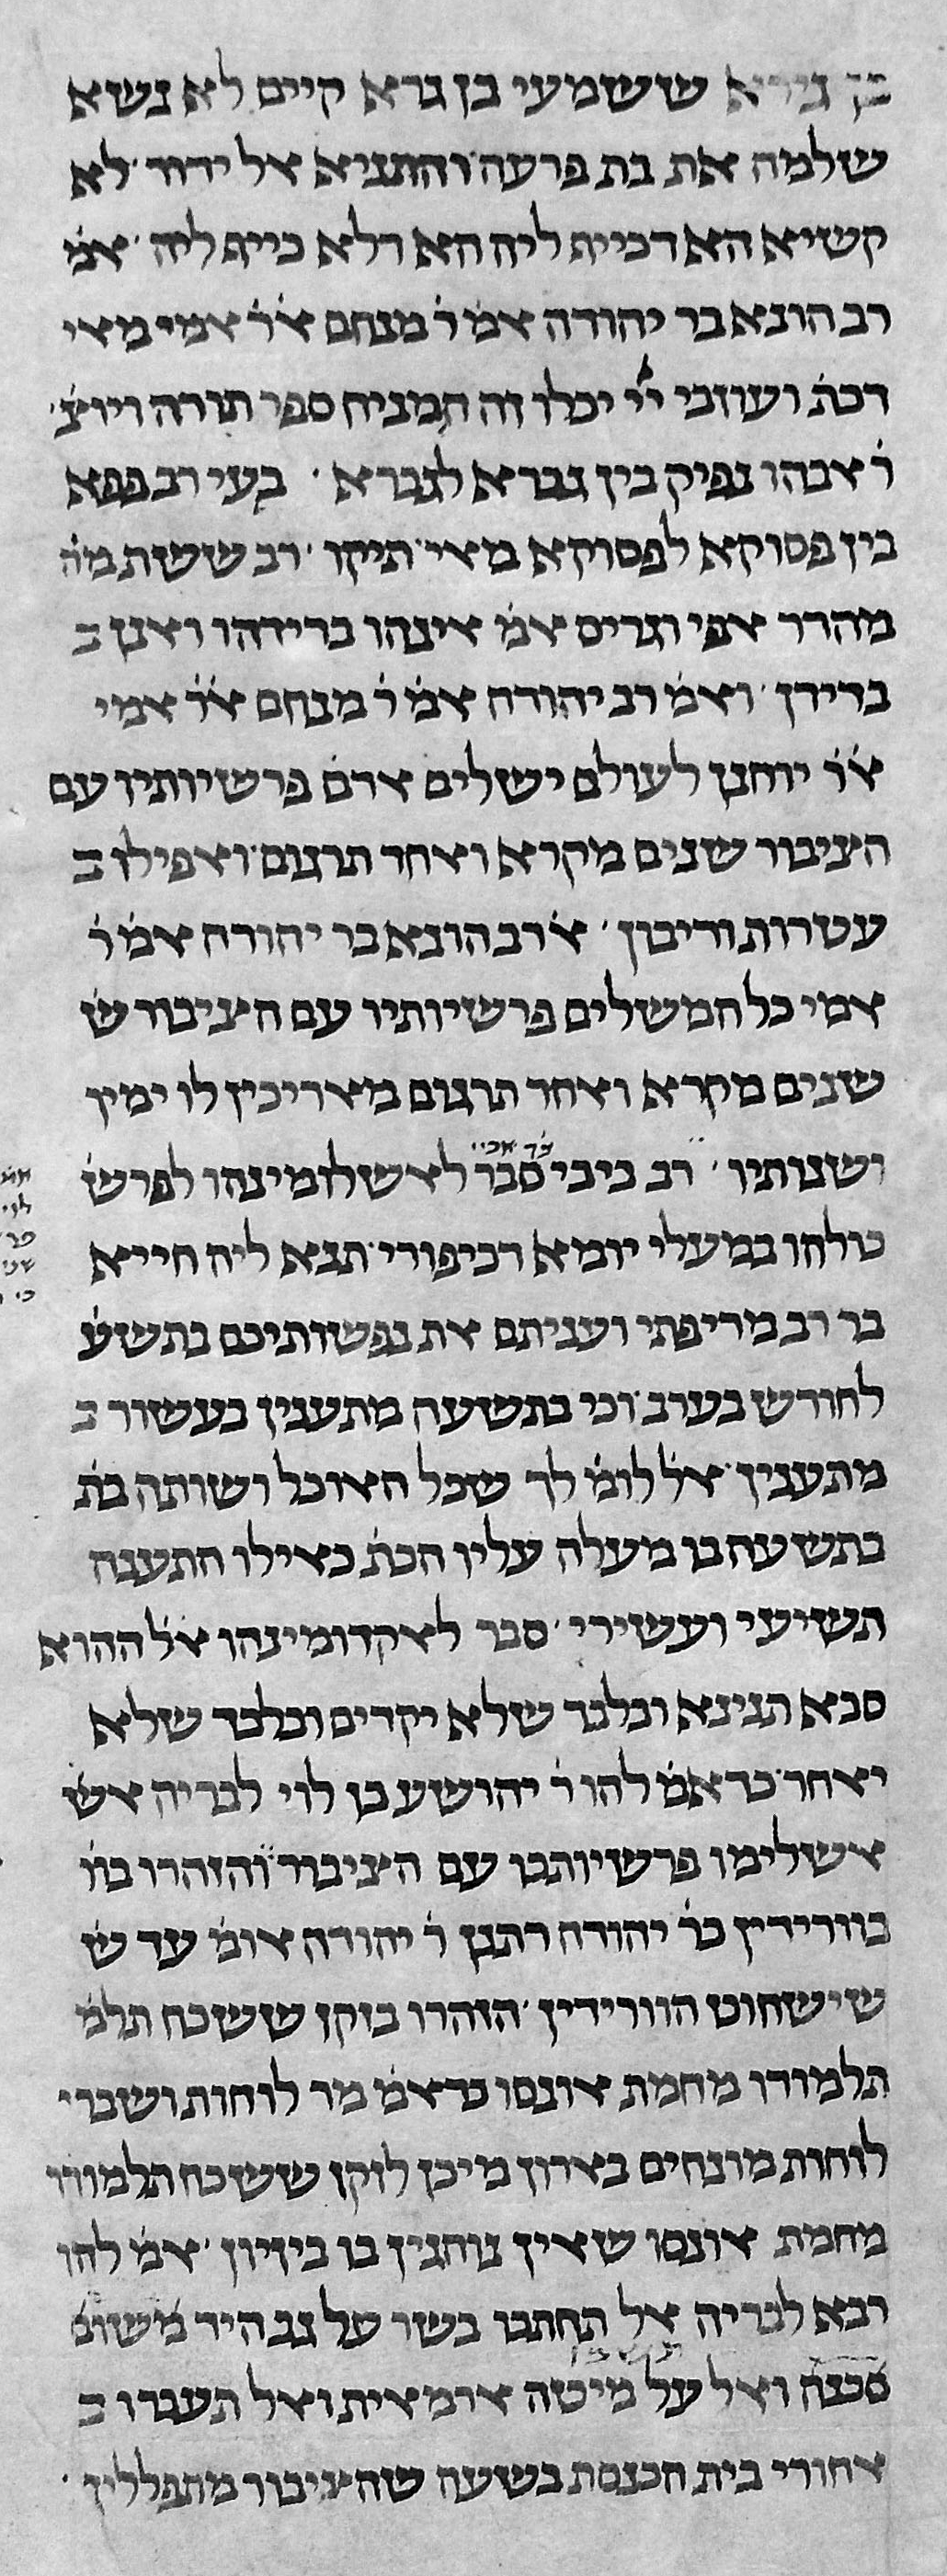 בן גירא ששמעי בן גרא קיים לא נשא
שלמה את בת פרעה והתניא אל ידור׳ לא
קשיא הא דכייף ליה הא דלא כייף ליה׳ אמ׳
רב הונא בר יהודה אמ׳ ר׳ מנחם א׳ר׳ אמי מאי
דכת׳ ועוזבי ייי יכלו זה המניח ספר תורה ויוצ׳
ר׳ אבהו נפיק בין גברא לגברא׳ בעי רב פפא
בין פסוקא לפסוקא מאי׳ תיקו׳ רב ששת מה׳
מהדר אפי וגריס אמ׳ אינהו בדידהו ואנן ב
בדידן׳ ואמ׳ רב יהודה אמ׳ ר׳ מנחם א׳ר׳ אמי
א׳ר׳ יוחנן לעולם ישלים אדם פרשיותיו עם
הציבור שנים מקרא ואחד תרגום׳ ואפילו ב
עטרות ודיבון׳ א׳ רב הונא בר יהודה אמ׳ ר׳
אמי כל המשלים פרשיותיו עם הציבור ש
שנים מקרא ואחד תרגום מאריכין לו ימיו
ושנותיו׳ רב ביבי בר אביי סבר לאשלומינהו לפרש׳
כולהו במעלי יומא דכיפורי׳ תנא ליה חייא
בר רב מדיפתי ועניתם את נפשותיכם בתשע׳
לחודש בערב׳ וכי בתשעה מתענין בעשור ב
מתענין׳ אל׳ לומ׳ לך שכל האוכל ושותה בת׳
בתשעה בו מעלה עליו הכת׳ כאילו התענה
תשיעי ועשירי׳ סבר לאקדומינהו א׳ל׳ ההוא
סבא תנינא ובלבד שלא יקדים ובלבד שלא
יאחר׳ כדאמ׳ להו ר׳ יהושע בן לוי לבריה אש׳
אשלימו פרשיותכו עם הציבור׳ והזהרו בוו׳
בוורידין כר׳ יהודה דתנן ר׳ יהודה אומ׳ עד ש
שישחוט הוורידין׳ הזהרו בזקן ששכח תלמ׳
תלמודו מחמת אונסו כדאמ׳ מר לוחות ושברי
לוחות מונחים בארון מיכן לזקן ששכח תלמודו
מחמת אונסו שאין נוהגין בו ביזיון׳ אמ׳ להו
רבא לבריה אל תחתכו בשר על גב היד משום
סכנה ואל על מיטה ארמאית ואל תעברו ב
אחורי בית הכנסת בשעה שהציבור מתפללין׳